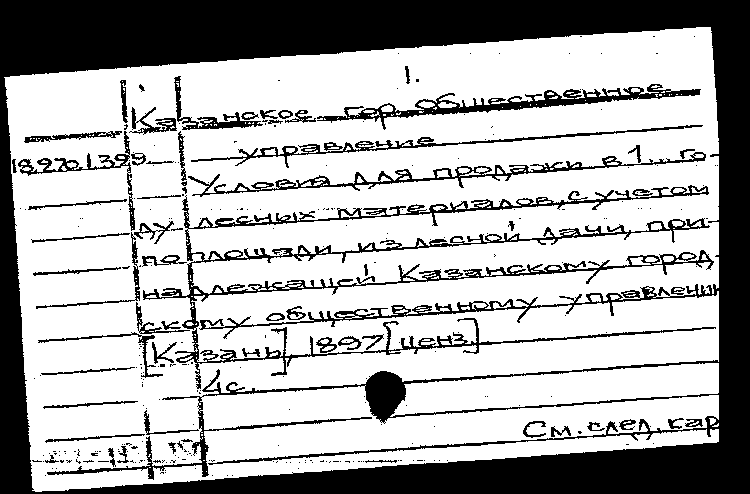 1.
Казанское гор. общественное
управление
18.270.1.399
Условия для продажи в 1... го-
ду лесных материалов, с учетом
по площади, из лесной дачи, при-
надлежащей Казанскому город-
скому общественному управлению
[Казань], 1897 [ценз.]
4с.
См. след. кар